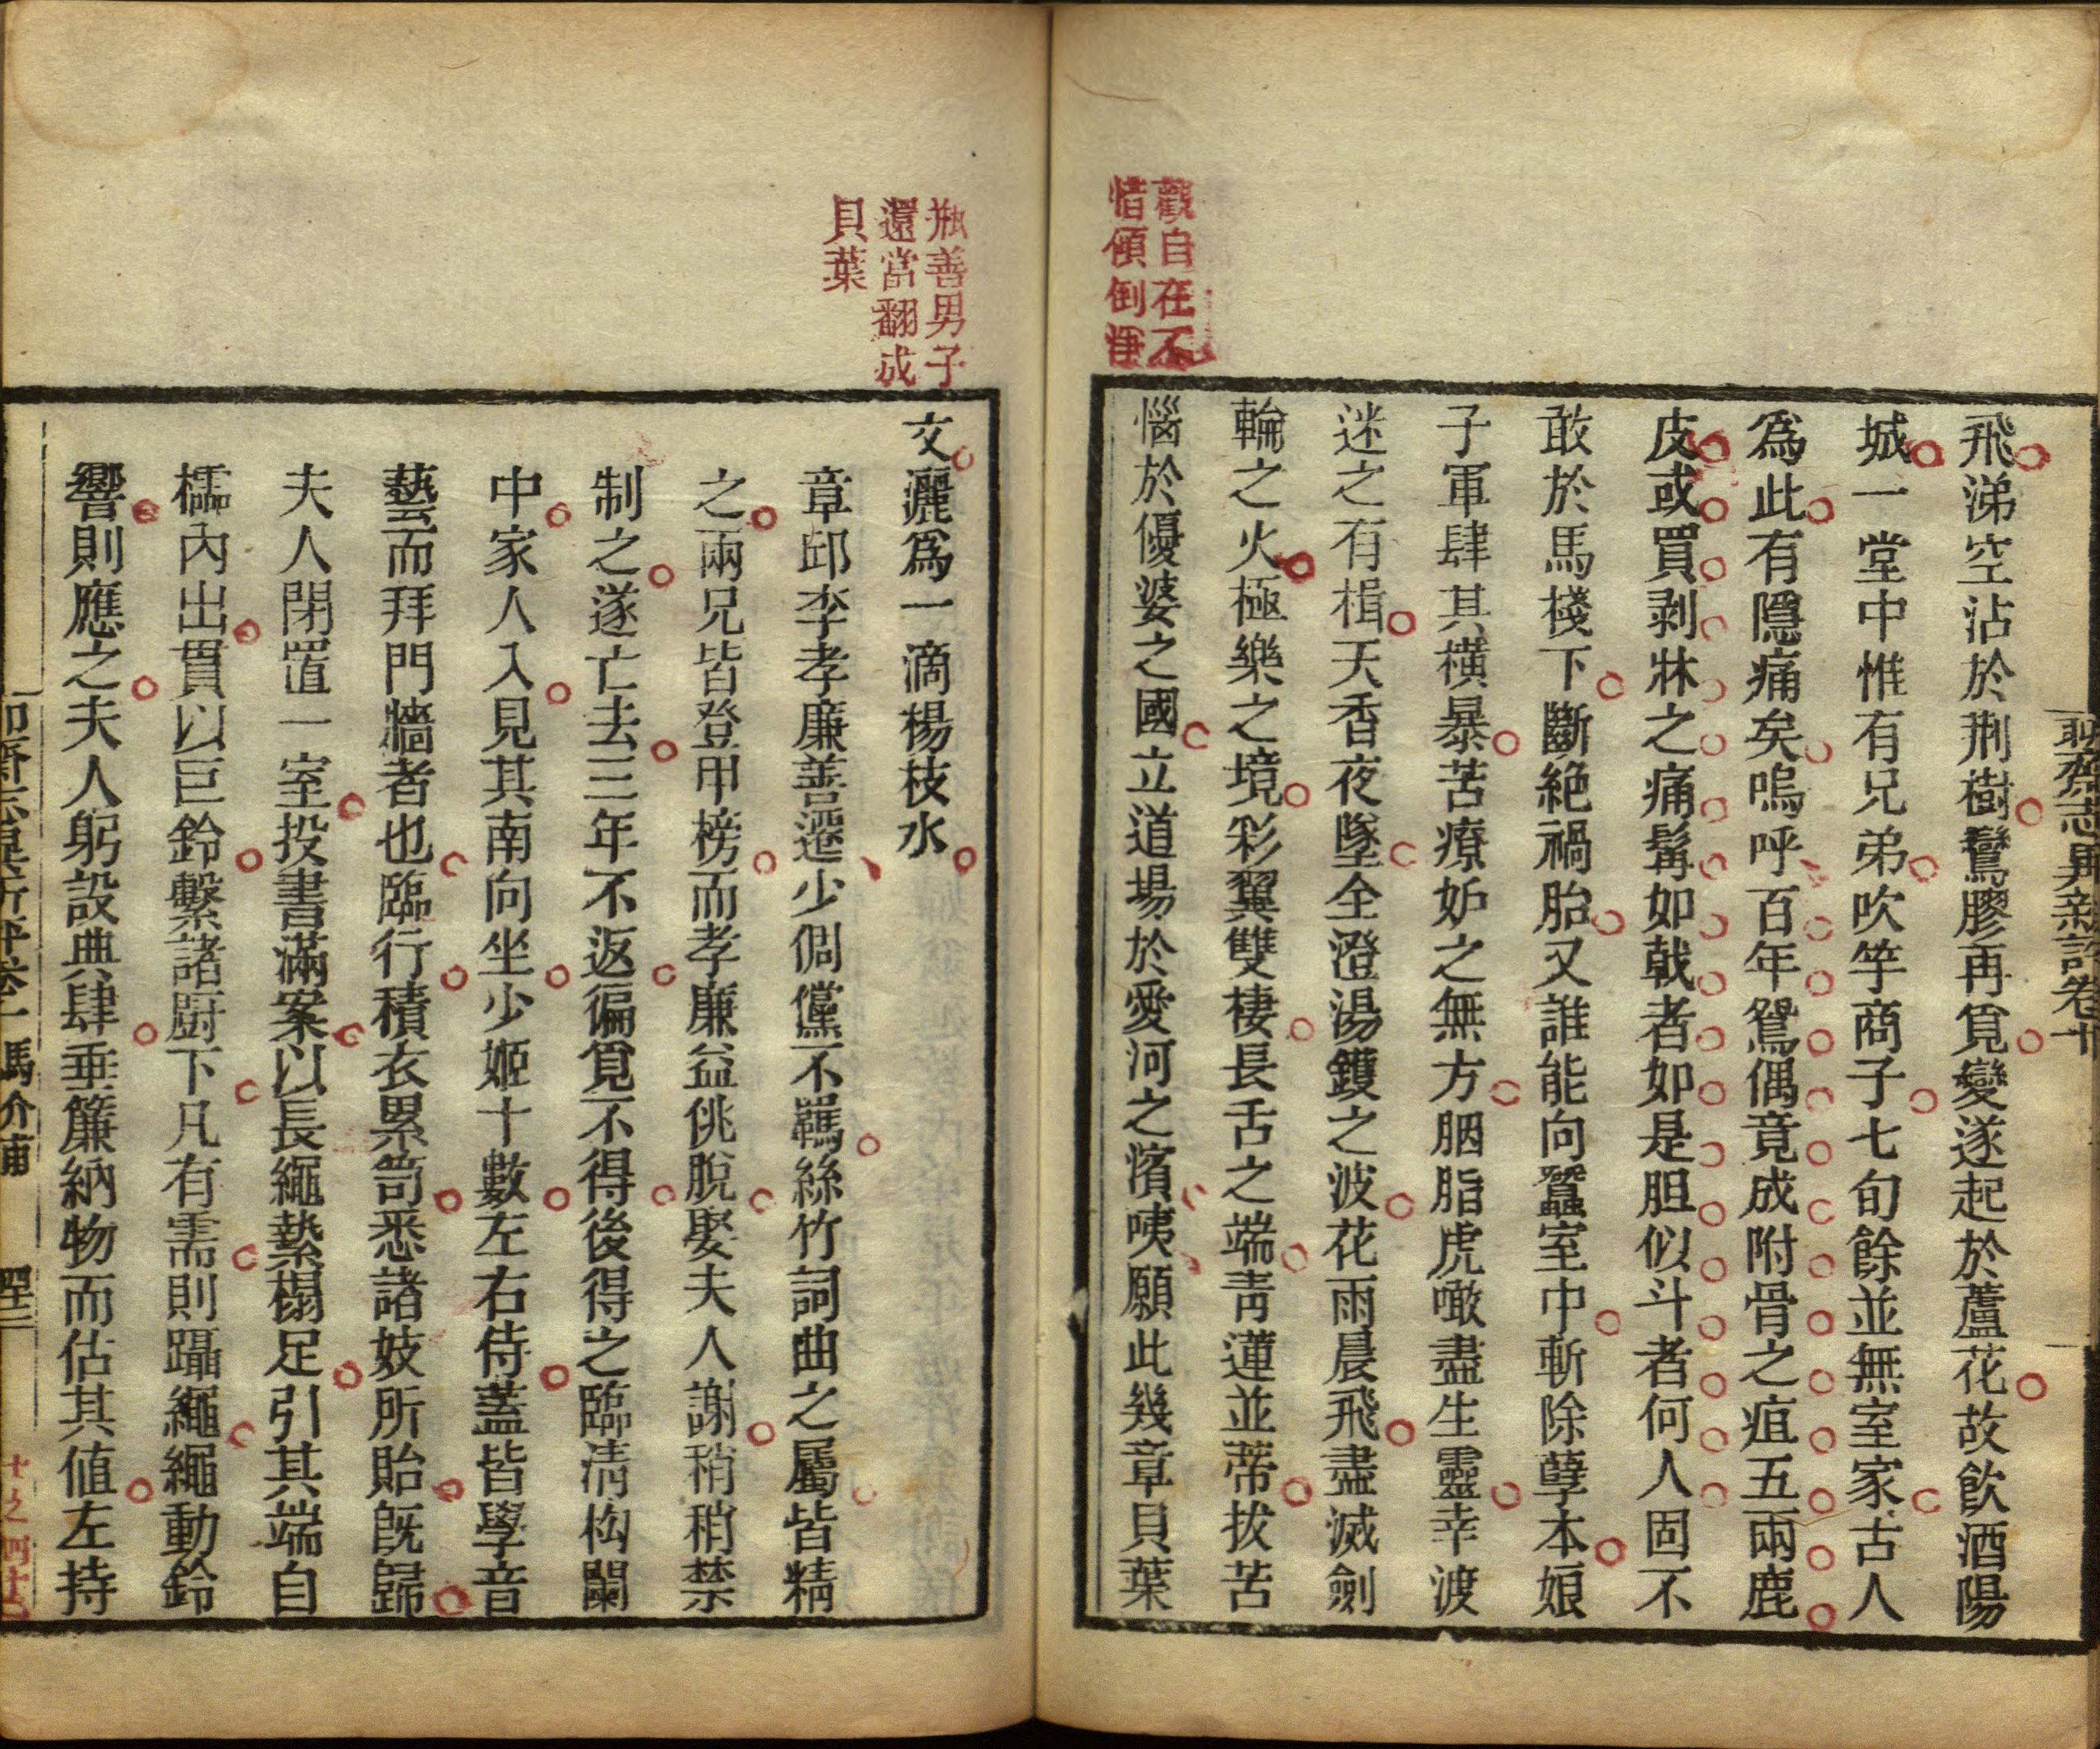 聊齋志異新評卷十
觀自在不
惜傾倒淨
飛涕空沾於荆樹鸞膠再覓變遂起於蘆花故飲酒陽
城一堂中惟有兄弟吹竽商子七旬餘並無室家古人
爲此有隱痛矣嗚呼百年鴛偶竟成附骨之疽五兩鹿
皮或買剥牀之痛髯如戟者如是胆似斗者何人固不
敢於馬棧下斷絶禍胎又誰能向蠶室中斬除孽本娘
子軍肆其横暴苦療妒之無方胭脂虎噉盡生靈幸渡
迷之有楫天香夜墜全澄湯鑊之波花雨晨飛盡滅劍
輪之火極樂之境彩翼雙棲長舌之端靑蓮並蒂拔苦
惱於優婆之國立道場於愛河之濱咦願此幾章貝葉
瓶善男子
還當翻成
貝葉
文灑爲一滴楊枝水
章邱李孝廉善遷少倜儻不羈絲竹詞曲之屬皆精
之兩兄皆登甲榜而孝廉益佻脫娶夫人謝稍稍禁
制之遂亡去三年不返徧覓不得後得之臨清构闌
中家人入見其南向坐少姬十數左右侍蓋皆學音
藝而拜門牆者也臨行積衣累笥悉諸妓所貽旣歸
夫人閉置一室投書滿案以長繩縶榻足引其端自
櫺內出貫以巨鈴繫諸廚下凡有需則躡繩繩動鈴
響則應之夫人躬設典肆垂簾納物而估其值左持
聊齋志異新評卷十 馬介甫
十之四十七